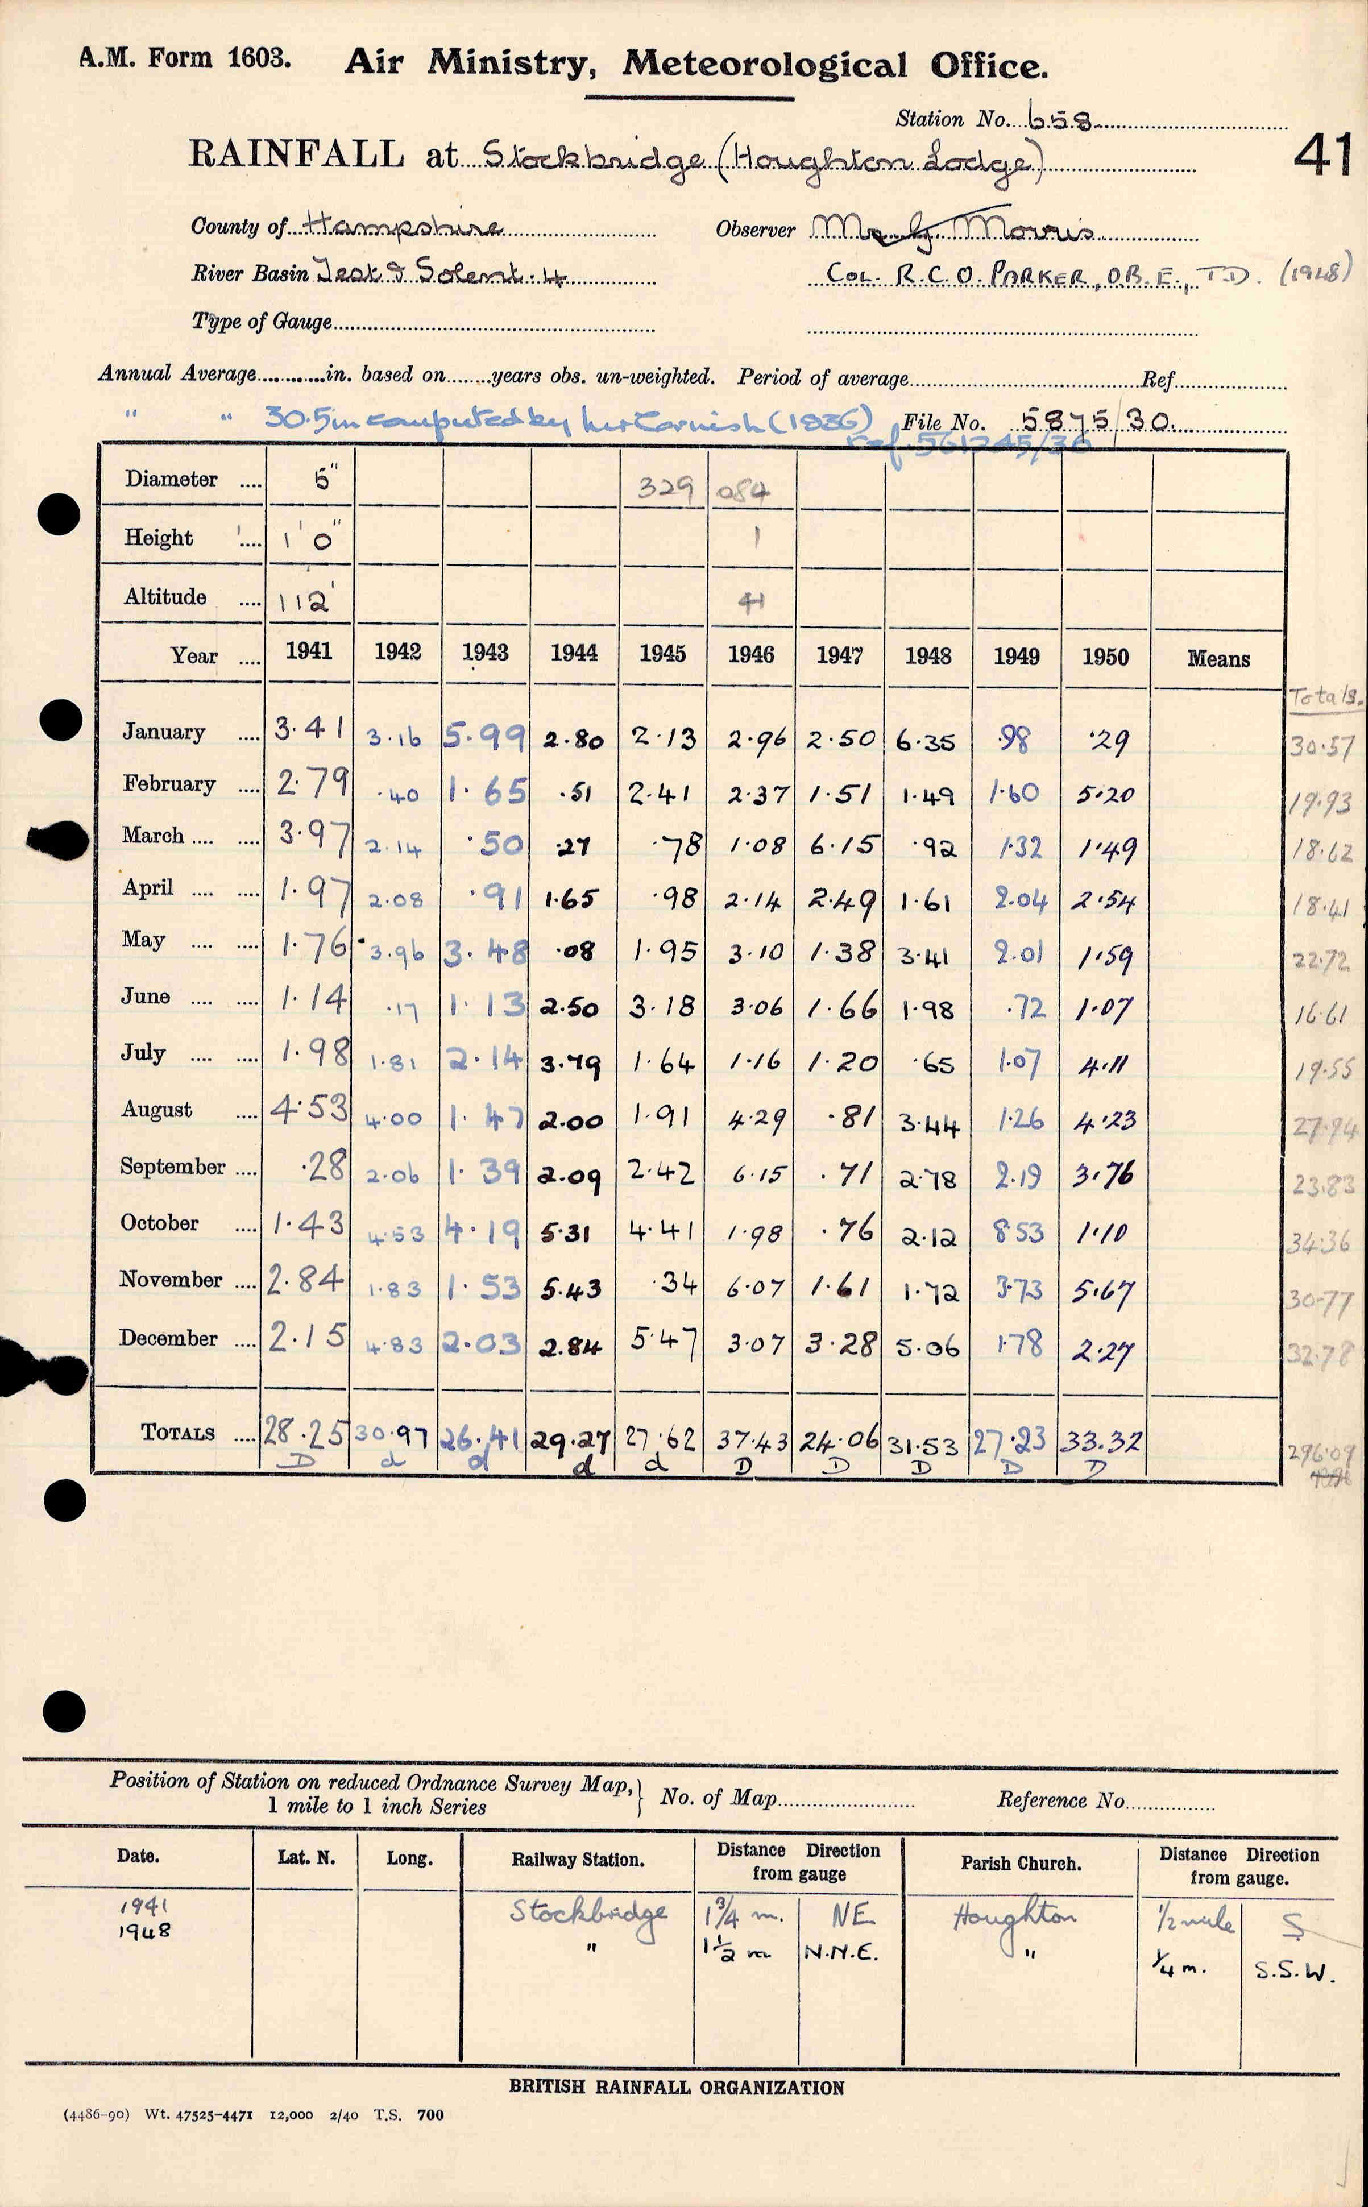 A.M. Form 1603. Air Ministry, Meteorological Office.
Station No. 658
41
RAINFALL at Stockbridge (Houghton Lodge)
County of Hampshire Observer Mr G Morris
River Basin Test & Solent. 4 COL. R.C.O. PARKER, O.B.E., T.D. (1948)
Type of Gauge
Annual Average in. based on years obs. un-weighted. Period of average Ref
" " 30.5in computed by Cornish (1936) File No. 5875/30
ref. 561245/36
Diameter 5" 329 084
Height 1' 0" 1
Altitude 112' 41
Year 1941 1942 1943 1944 1945 1946 1947 1948 1949 1950 Means
Totals.
January 3.41 3.16 5.99 2.80 2.13 2.96 2.50 6.35 .98 .29 30.57
February 2.79 .40 1.65 .51 2.41 2.37 1.51 1.49 1.60 5.20 19.93
March 3.97 2.14 .50 .27 .78 1.08 6.15 .92 1.32 1.49 18.62
April 1.97 2.08 .91 1.65 .98 2.14 2.49 1.61 2.04 2.54 18.41
May 1.76 3.96 3.48 .08 1.95 3.10 1.38 3.41 2.01 1.59 22.72
June 1.14 .17 1.13 2.50 3.18 3.06 1.66 1.98 .72 1.07 16.61
July 1.98 1.81 2.14 3.79 1.64 1.16 1.20 .65 1.07 4.11 19.55
August 4.53 4.00 1.47 2.00 1.91 4.29 .81 3.44 1.26 4.23 27.94
September .28 2.06 1.39 2.09 2.42 6.15 .71 2.78 2.19 3.76 23.83
October 1.43 4.53 4.19 5.31 4.41 1.98 .76 2.12 8.53 1.10 34.36
November 2.84 1.83 1.53 5.43 .34 6.07 1.61 1.72 3.73 5.67 30.77
December 2.15 4.83 2.03 2.84 5.47 3.07 3.28 5.06 1.78 2.27 32.78
TOTALS 28.25 30.97 26.41 29.27 27.62 37.43 24.06 31.53 27.23 33.32 296.09
D d d d d D D D D D
Position of Station on reduced Ordnance Survey Map, } No. of Map Reference No.
1 mile to 1 inch Series
Date. Lat. N. Long. Railway Station. Distance Direction from gauge Parish Church. Distance Direction from gauge.
1941 Stockbridge 1 3/4 m. NE Houghton 1/2 mile S
1948 " 1 1/2 m N.N.E. " 1/4 m. S.S.W.
BRITISH RAINFALL ORGANIZATION
(4486-90) Wt. 47525-4471 12,000 2/40 T.S. 700